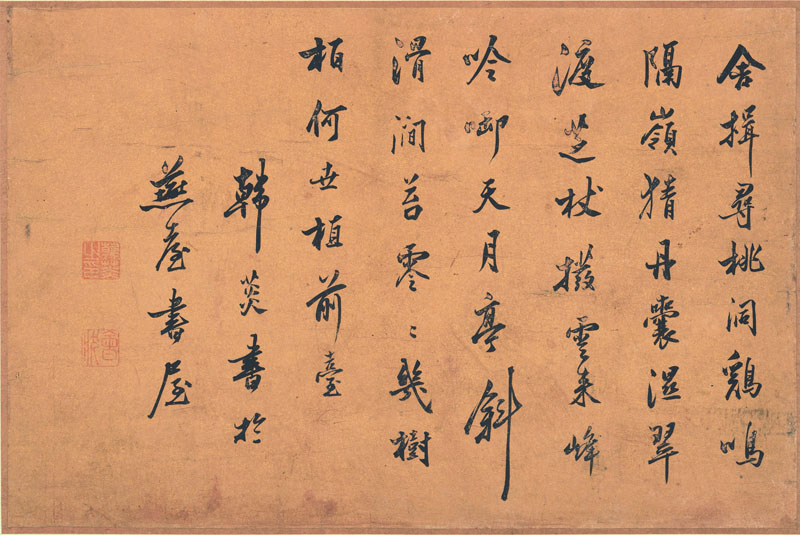 舍揖尋桃洞鷄鳴
隔嶺猜丹囊濕翠
渡芝杖撥雲來峰
吟啣天月亭斜
滑澗苔零〻幾樹
栢何世植前臺
韩菼書於
燕臺書屋